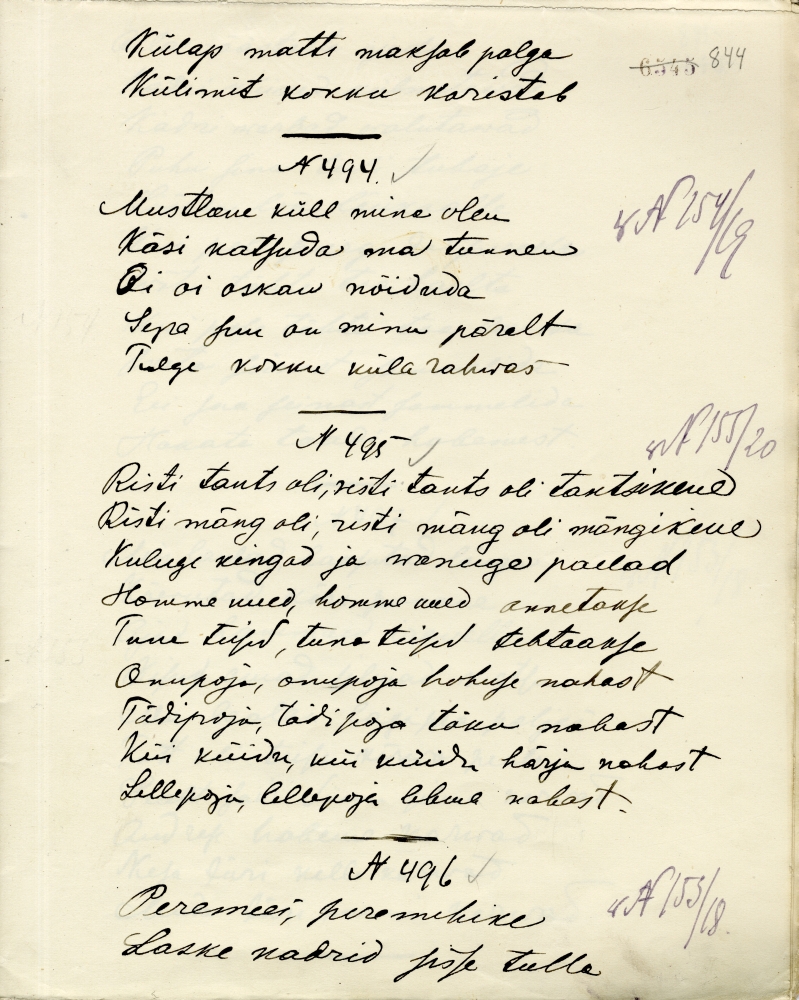 Külap matti maksab palga
Külimit kokku koristab
6545 844
N 494.
Mustlane küll mina olen
N 154/19
Käsi katsuda ma tunnen
Oi oi oskan nõiduda
Sepa suu on minu pärelt
Tulge kokku küla rahwas
N 495
N 155/20
Risti tants oli, risti tants oli tantsikene
Risti mäng oli, risti mäng oli mängikene
Kuluge kingad ja wanuge paelad
Homme uued, homme uued annetakse
Tuna teised, tuna teised tehtaakse
Onupoja, onupoja hobuse nahast
Tädipoja, tädipoja täku nahast
Küi küidu, küi küidu härja nahast
Lellepoja, lellepoja lehma nahast.
N 496
N 153/18.
Peremees, peremehike
Laske kadrid sisse tulla